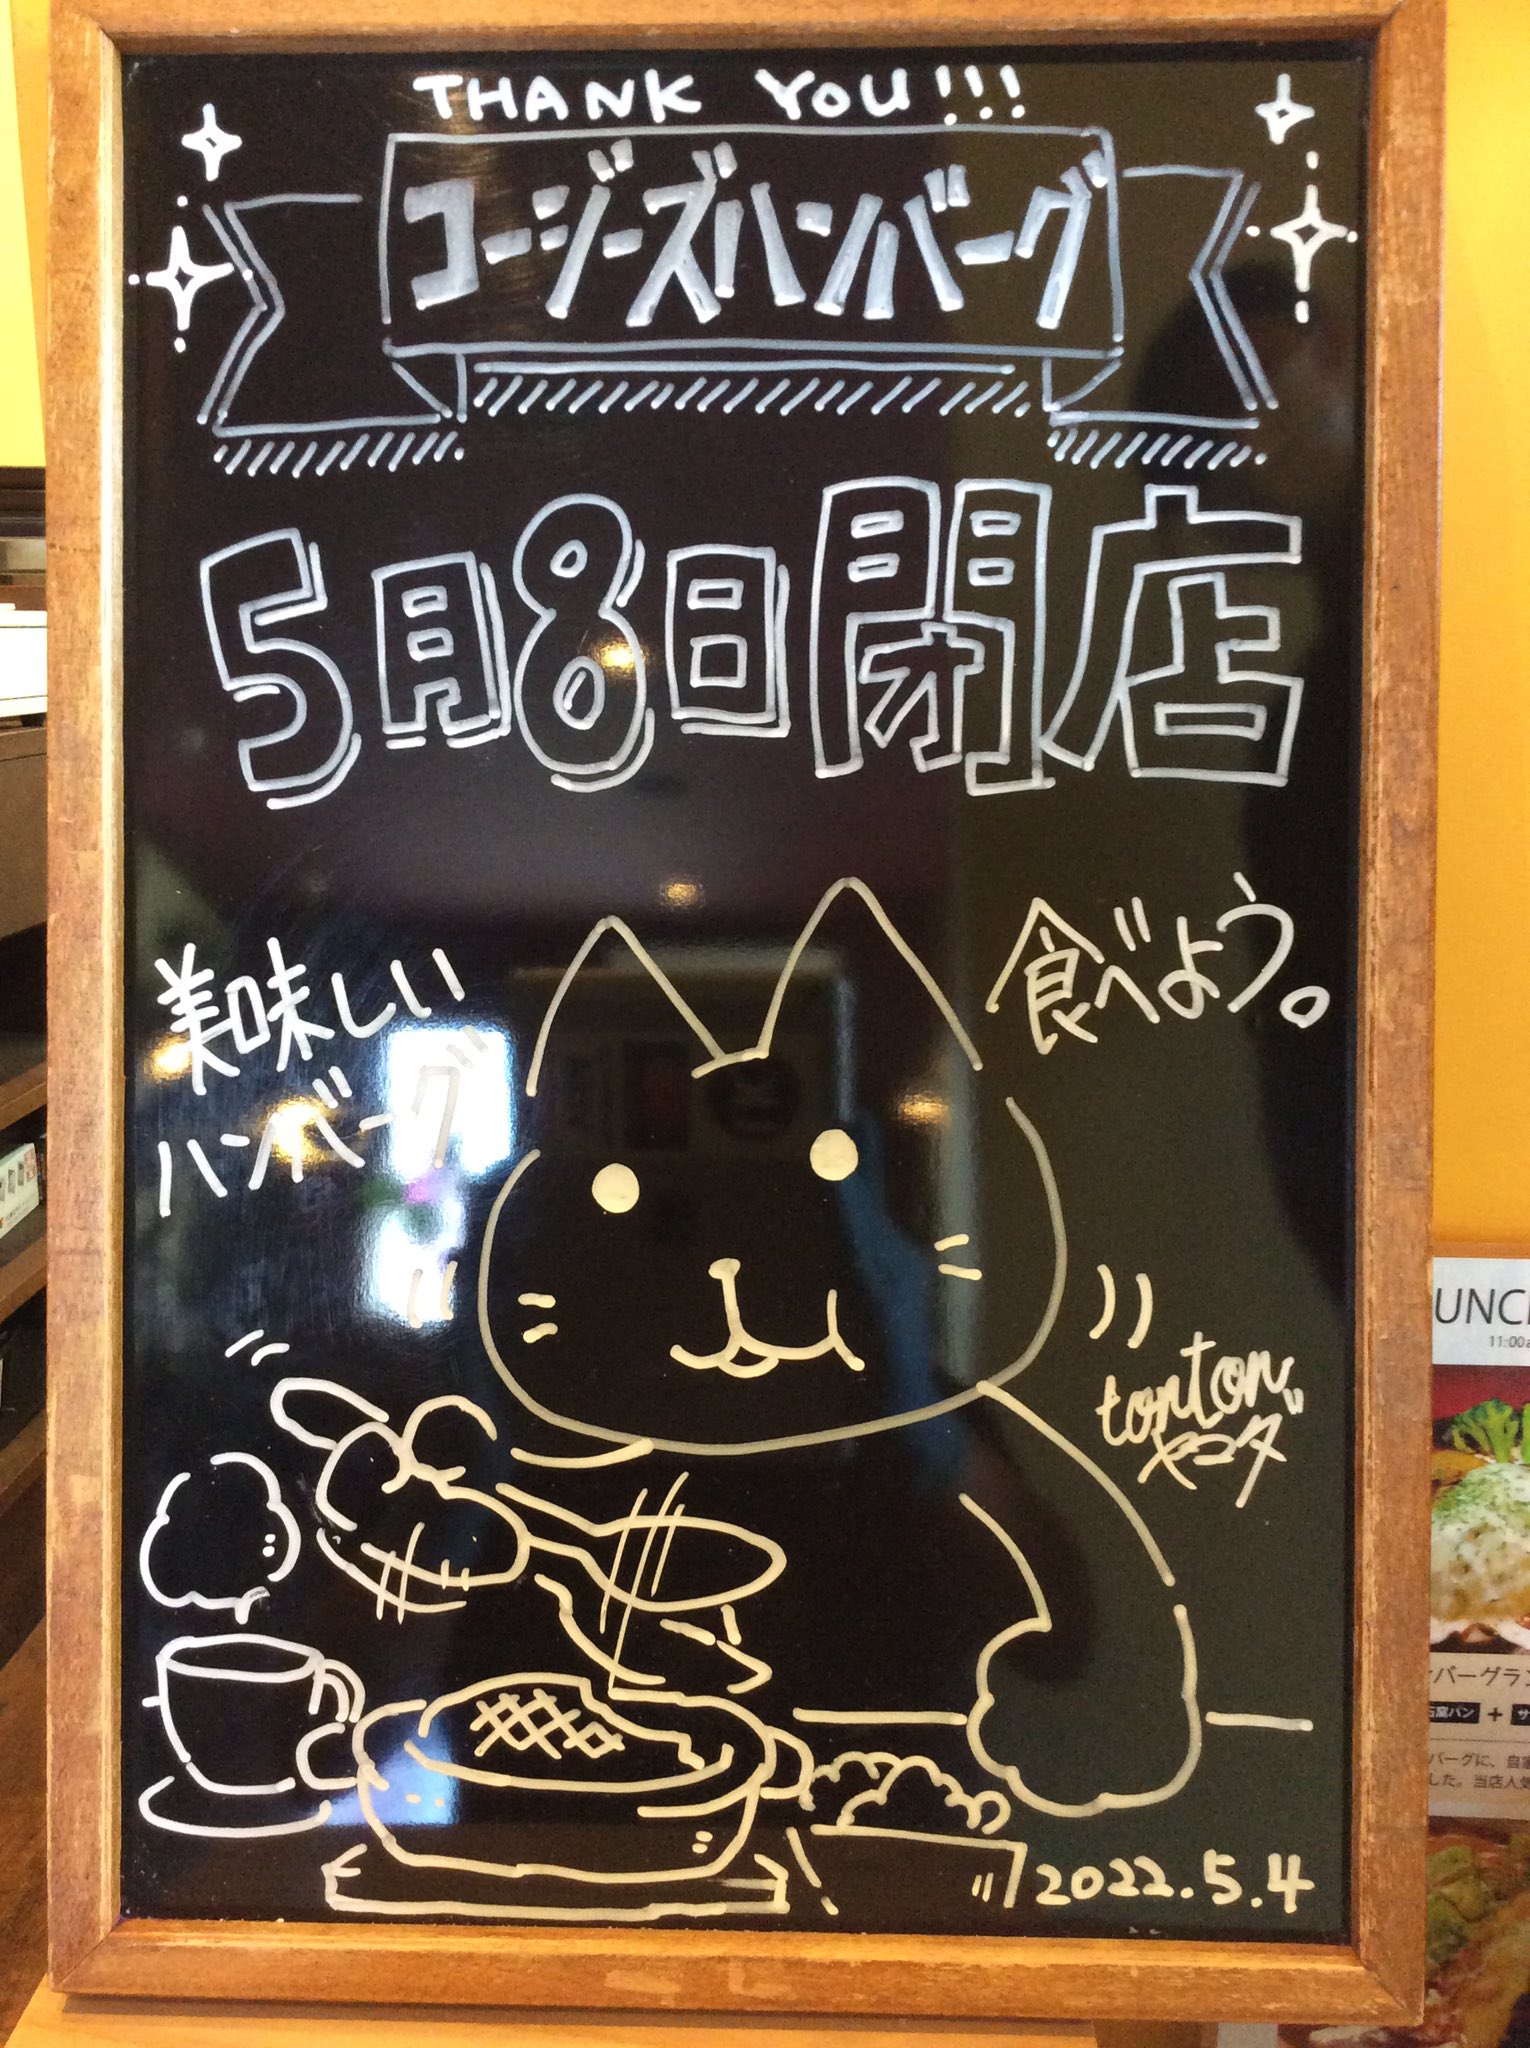 THANK YOU!!!
コージーズハンバーグ
5月8日閉店
美味しい
ハンバーグ
食べよう。
tonton
2022.5.4
UNC
11:00a
バーグラン
石窯パン + サ
バーグに、自
した。当店人気